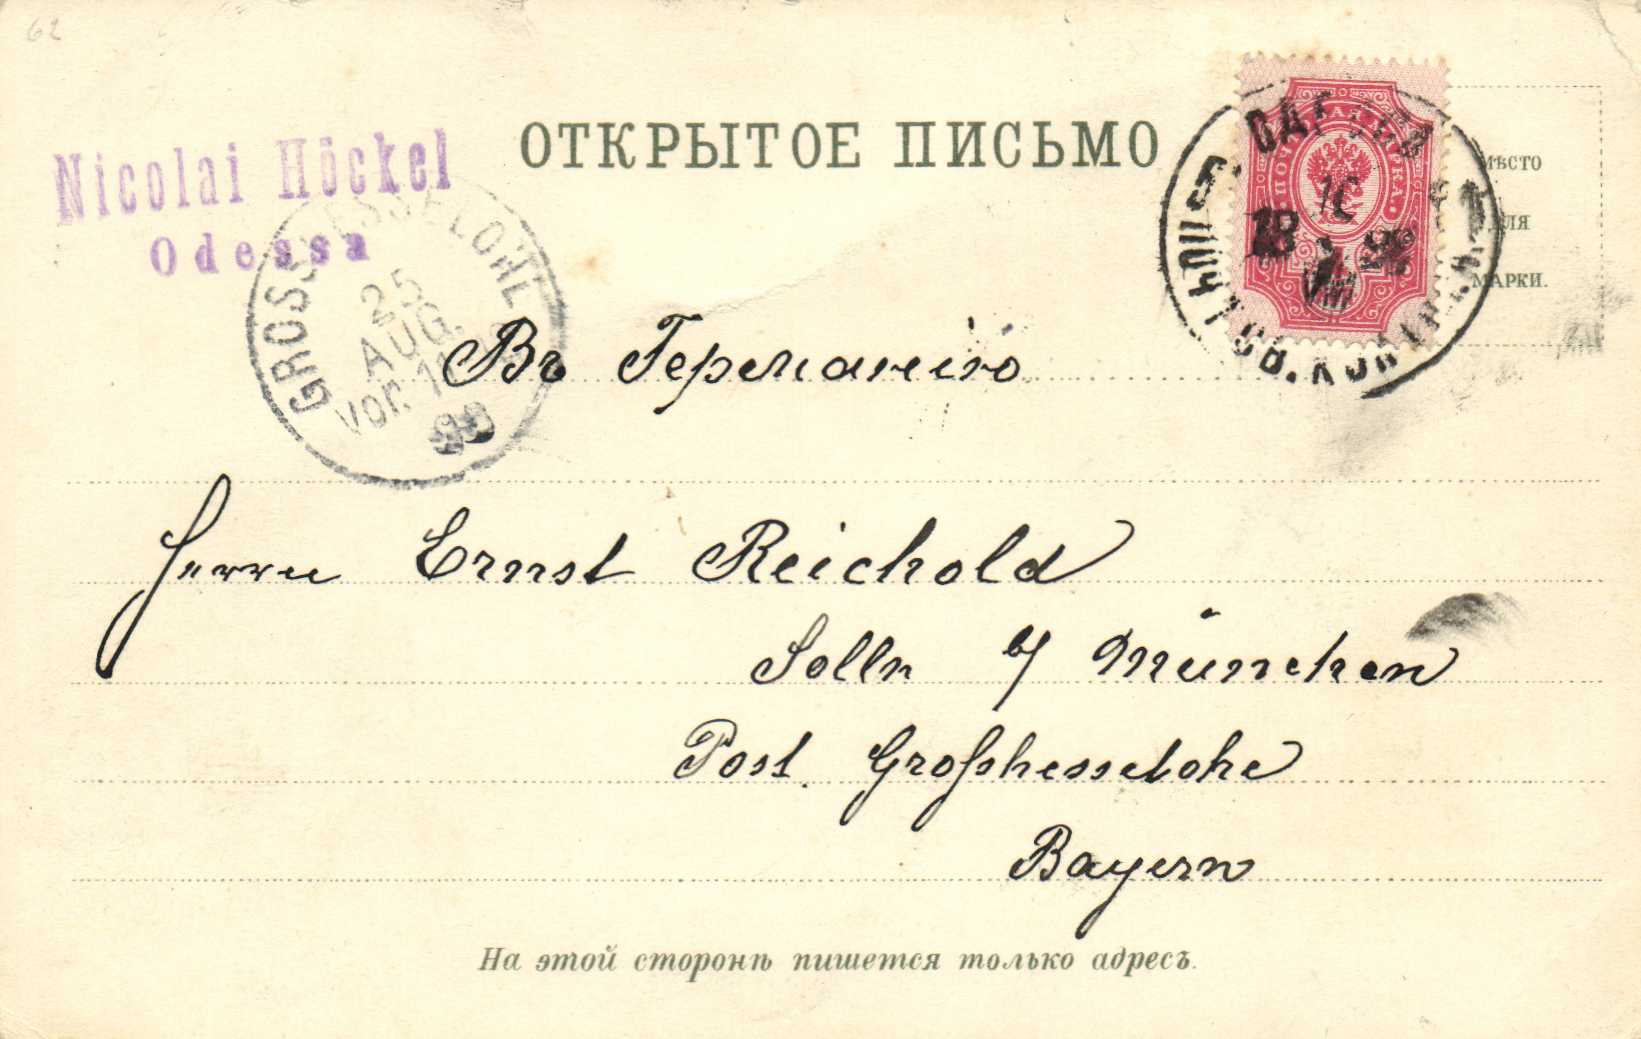 62
ОТКРЫТОЕ ПИСЬМО
Nicolai Höckel
Odessa
МѢСТО
ДЛЯ
МАРКИ.
ПОЧТОВАЯ МАРКА
18
GROSSHESSELOHE
25
AUG.
Vor. 11
99
Въ Германію
Herrn Ernst Reichold
Solln b/ München
Post Großhesselohe
Bayern
На этой сторонѣ пишется только адресъ.